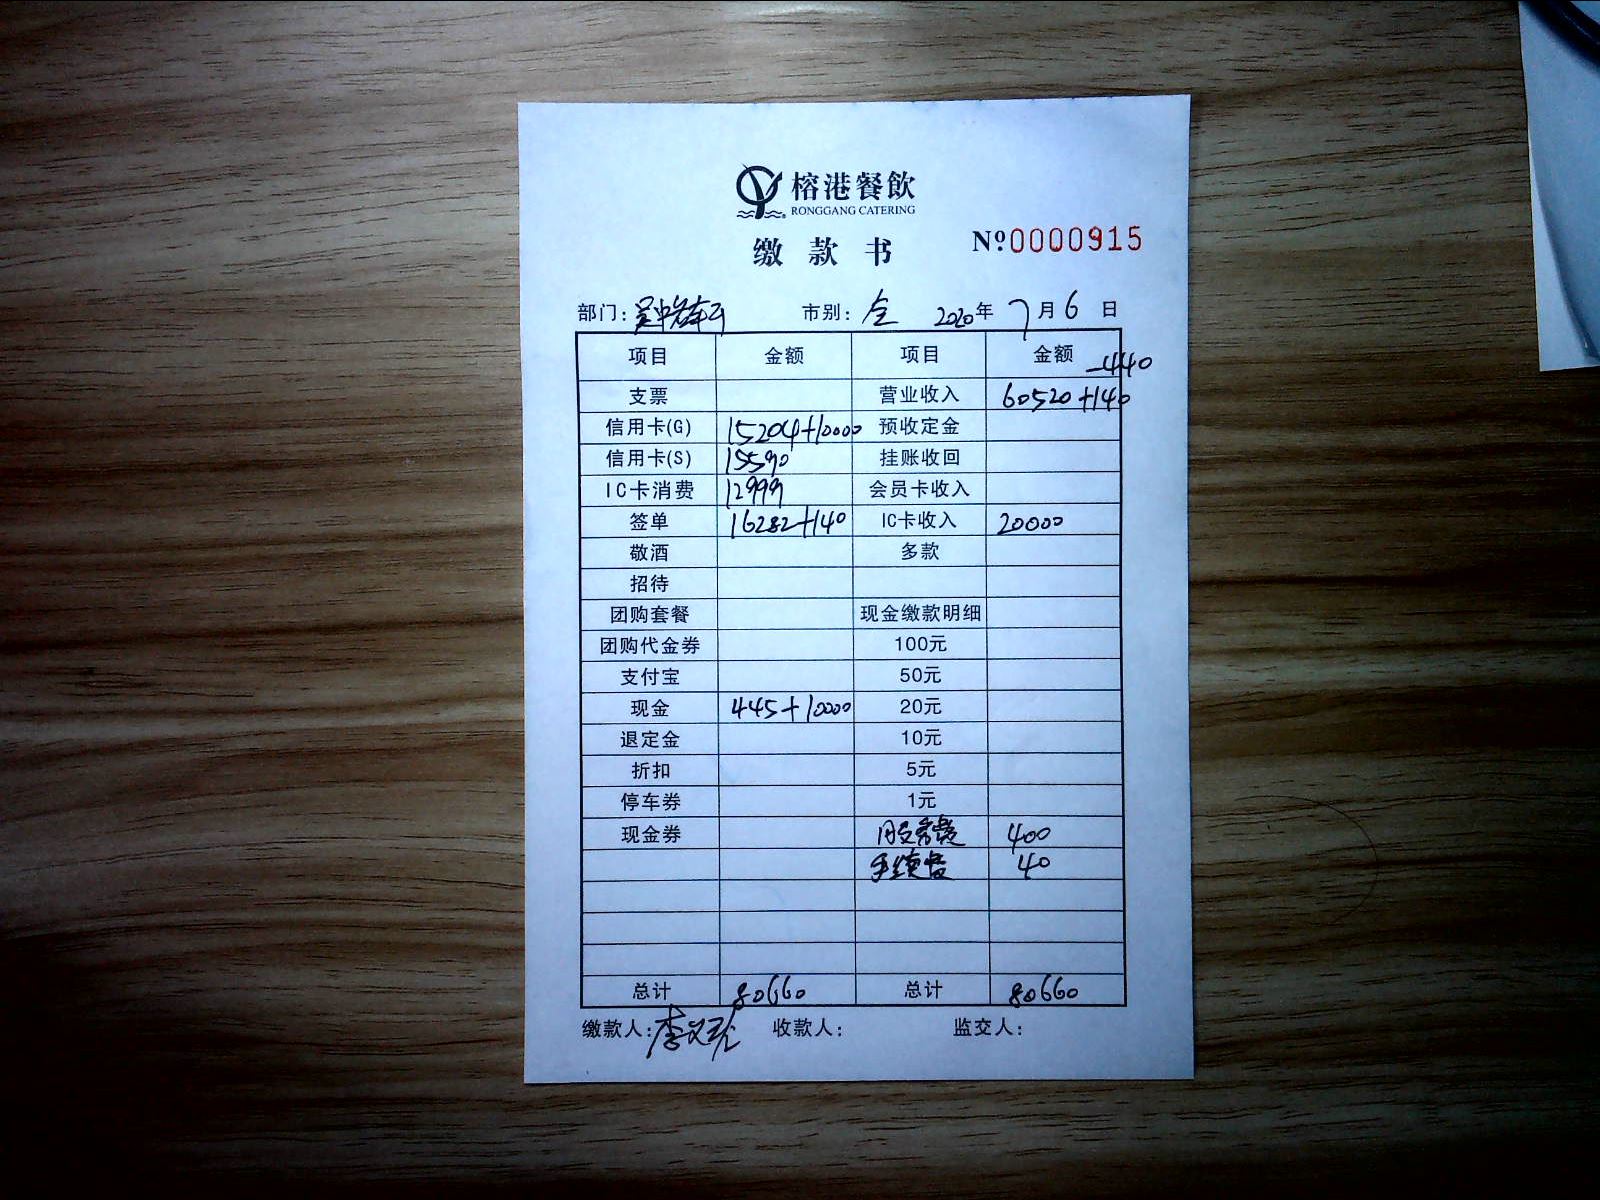 榕港餐飲
RONGGANG CATERING
缴款书
Nº0000915
部门: 市别: 全 2020年 7月6日
项目 金额 项目 金额 -440
支票 营业收入 60520+140
信用卡(G) 15204+10000 预收定金
信用卡(S) 15590 挂账收回
IC卡消费 12999 会员卡收入
签单 16282+140 IC卡收入 20000
敬酒 多款
招待
团购套餐 现金缴款明细
团购代金券 100元
支付宝 50元
现金 445+10000 20元
退定金 10元
折扣 5元
停车券 1元
现金券 400
手续费 40
总计 80660 总计 80660
缴款人: 李 收款人: 监交人: